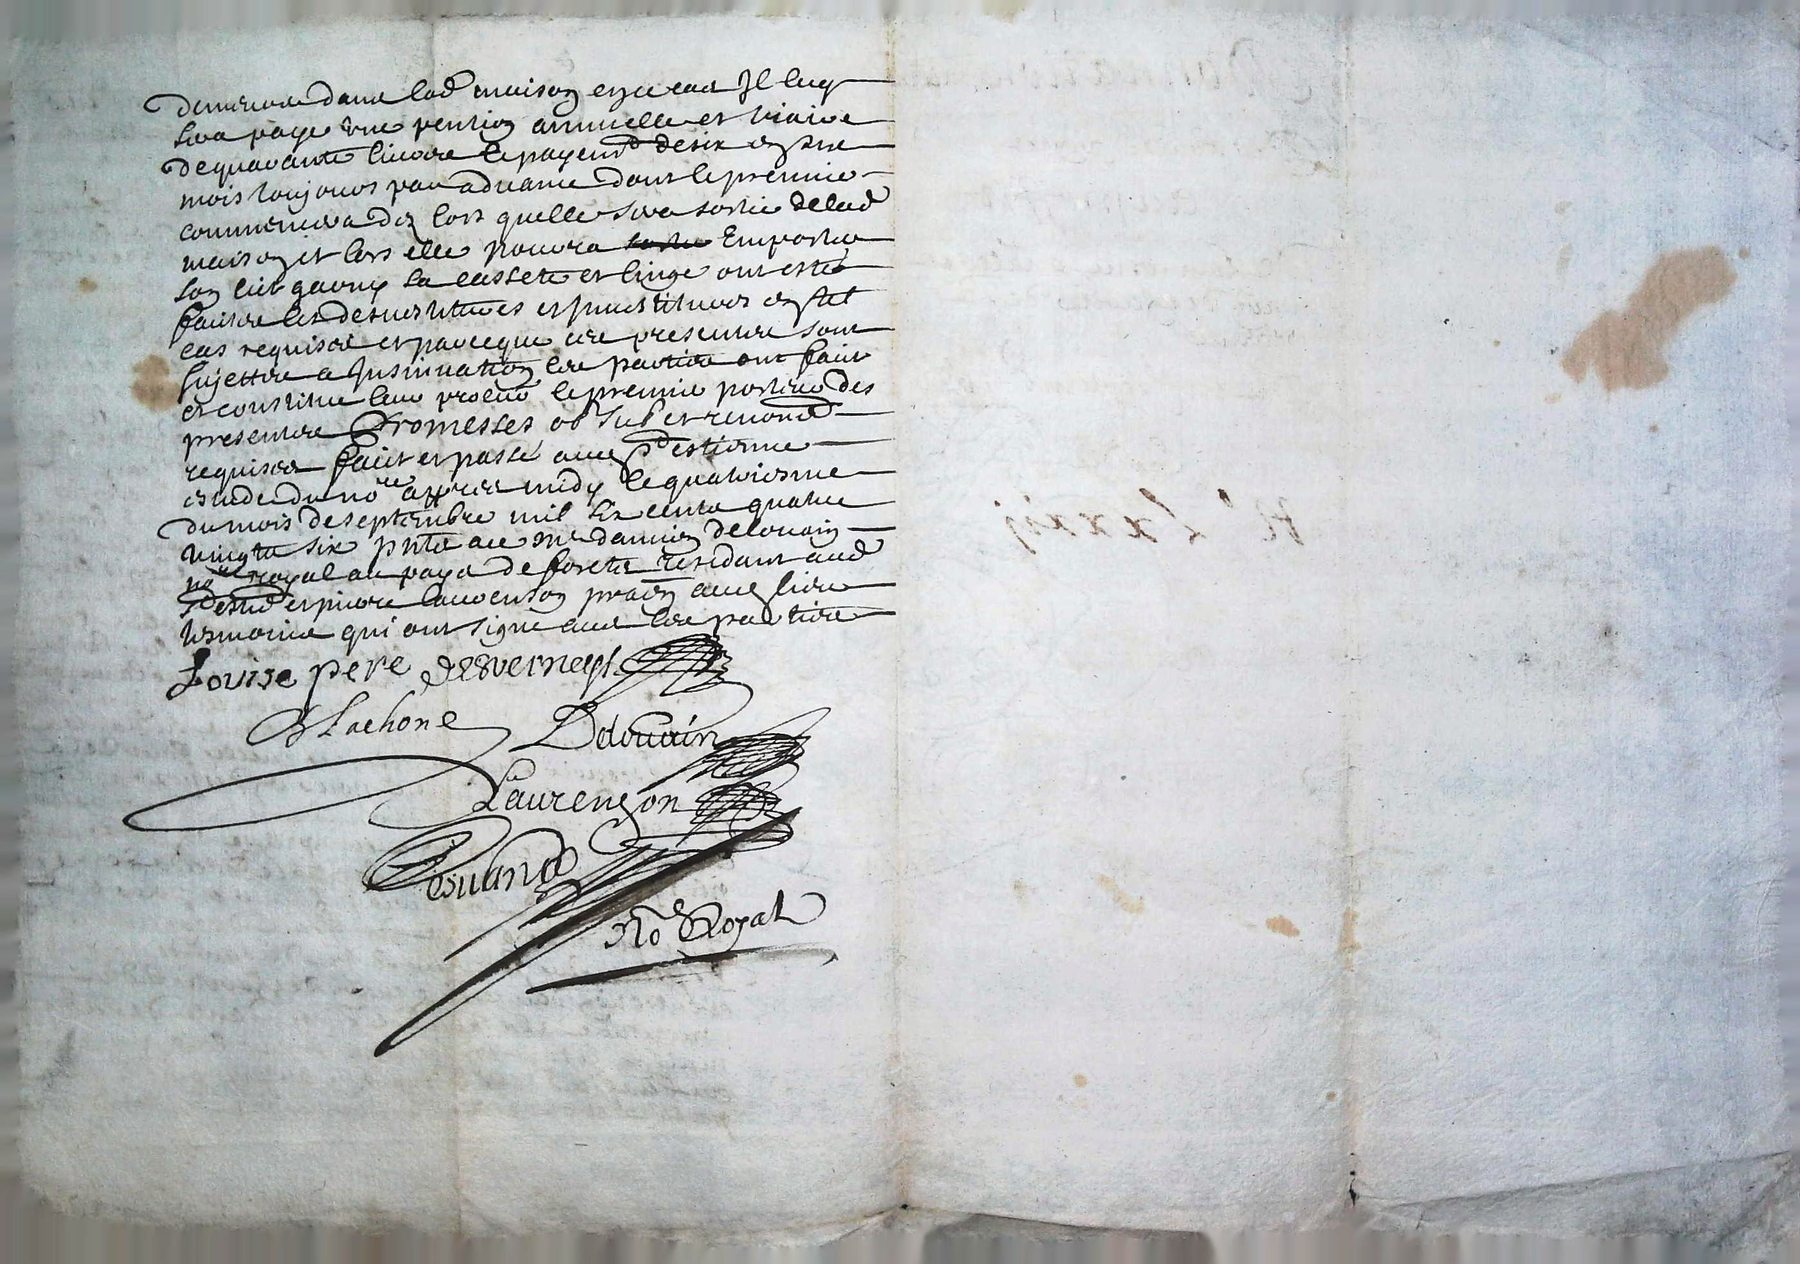 demeure dans lad maison en ce cas Il luy
sera paye une pention annuelle et viaire
de quarante livres le payem de six en six
mois toujours par advance dont le premier
commencera dez lors quelle sera sortie de lad
maison et lors elle pourra Emporter
son lict garny sa cassete et linge ont este
faites les desvestitures et Investitures en tel
cas requises et parceque ces presentes sont
sujettes a Insinuation les parties ont fait
et constitue leur procur le premier porteur des
presentes Promesses ob sub et renond
requises fait et passé a
estude du nore appres midy le quatoriesme
du mois de septembre mil six cents quatre
vingts six pnts a Mr damien delouain
nore royal au pays de forets residant aud
et pierre laurenson praen aud lieu
tesmoins qui ont signe avec les parties
Louise pere desverneys
Lachone Ddouain
Laurençon
No Royal
R Lxxxij